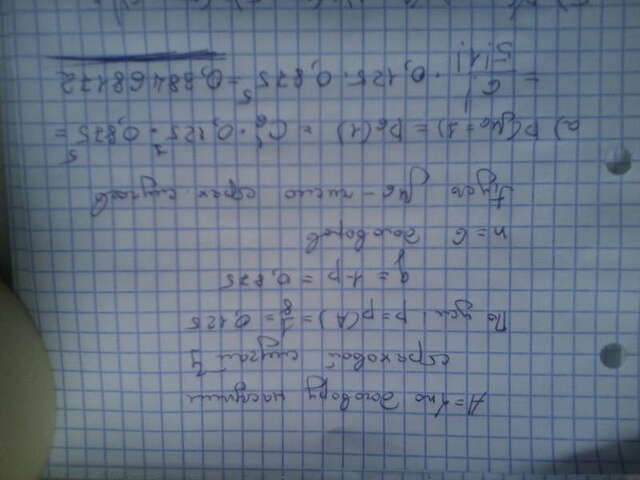 A={по договору наступил
страховой случай}
По усл. p=p(A)=1/8=0,125
q=1-p=0,875
n=6 договоров
Пусть μ6 - число страх. случаев
а) P(μ6=1)=P6(1)=C₆¹·0,125¹·0,875⁵=
=6!/5!1!·0,125·0,875⁵=0,38468172